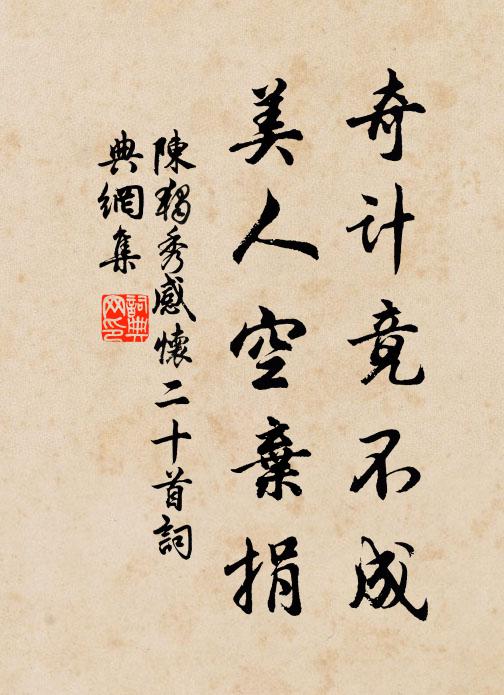 奇计竟不成
美人空棄捐
陳獨秀感懷二十首詞
典網集
詞典
网印